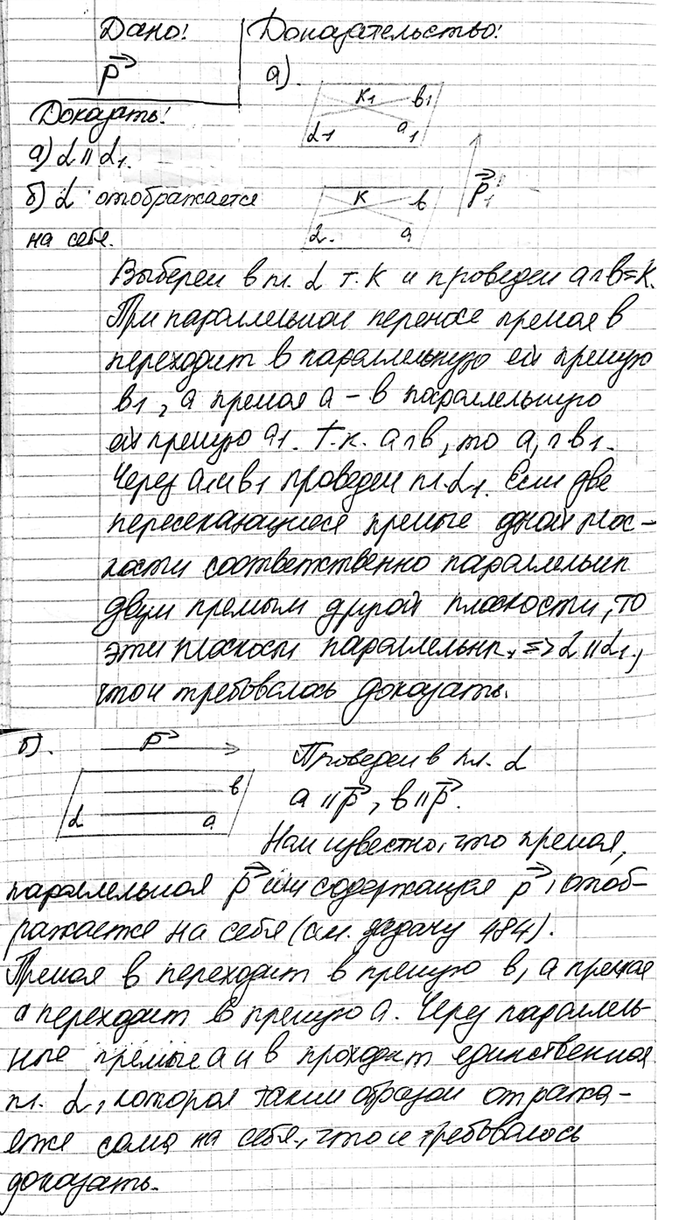 Дано:
Доказательство:
p
а).
Доказать:
K₁ в₁
α₁ a₁
а) α ॥ α₁.
p₁
б) α отображается
K в
α. a
на себя.
Выберем в пл. α т. K и проведем a∩в=K.
При параллельном переносе прямая в
переходит в параллельную ей прямую
в₁, а прямая a – в параллельную
ей прямую a₁. Т.к. a∩в, то a₁∩в₁.
Через a₁ и в₁ проведем пл. α₁. Если две
пересекающиеся прямые одной плос-
кости соответственно параллельны
двум прямым другой плоскости, то
эти плоскости параллельны, => α ॥ α₁,
что и требовалось доказать.
б).
p
в
α a
Проведем в пл. α
a ॥ p, в ॥ p.
Нам известно, что прямая,
параллельная p или содержащая p, отоб-
ражается на себя (см. задачу 484).
Прямая в переходит в прямую в, а прямая
a переходит в прямую a. Через параллель-
ные прямые a и в проходит единственная
пл. α, которая таким образом отража-
ется сама на себя, что и требовалось
доказать.